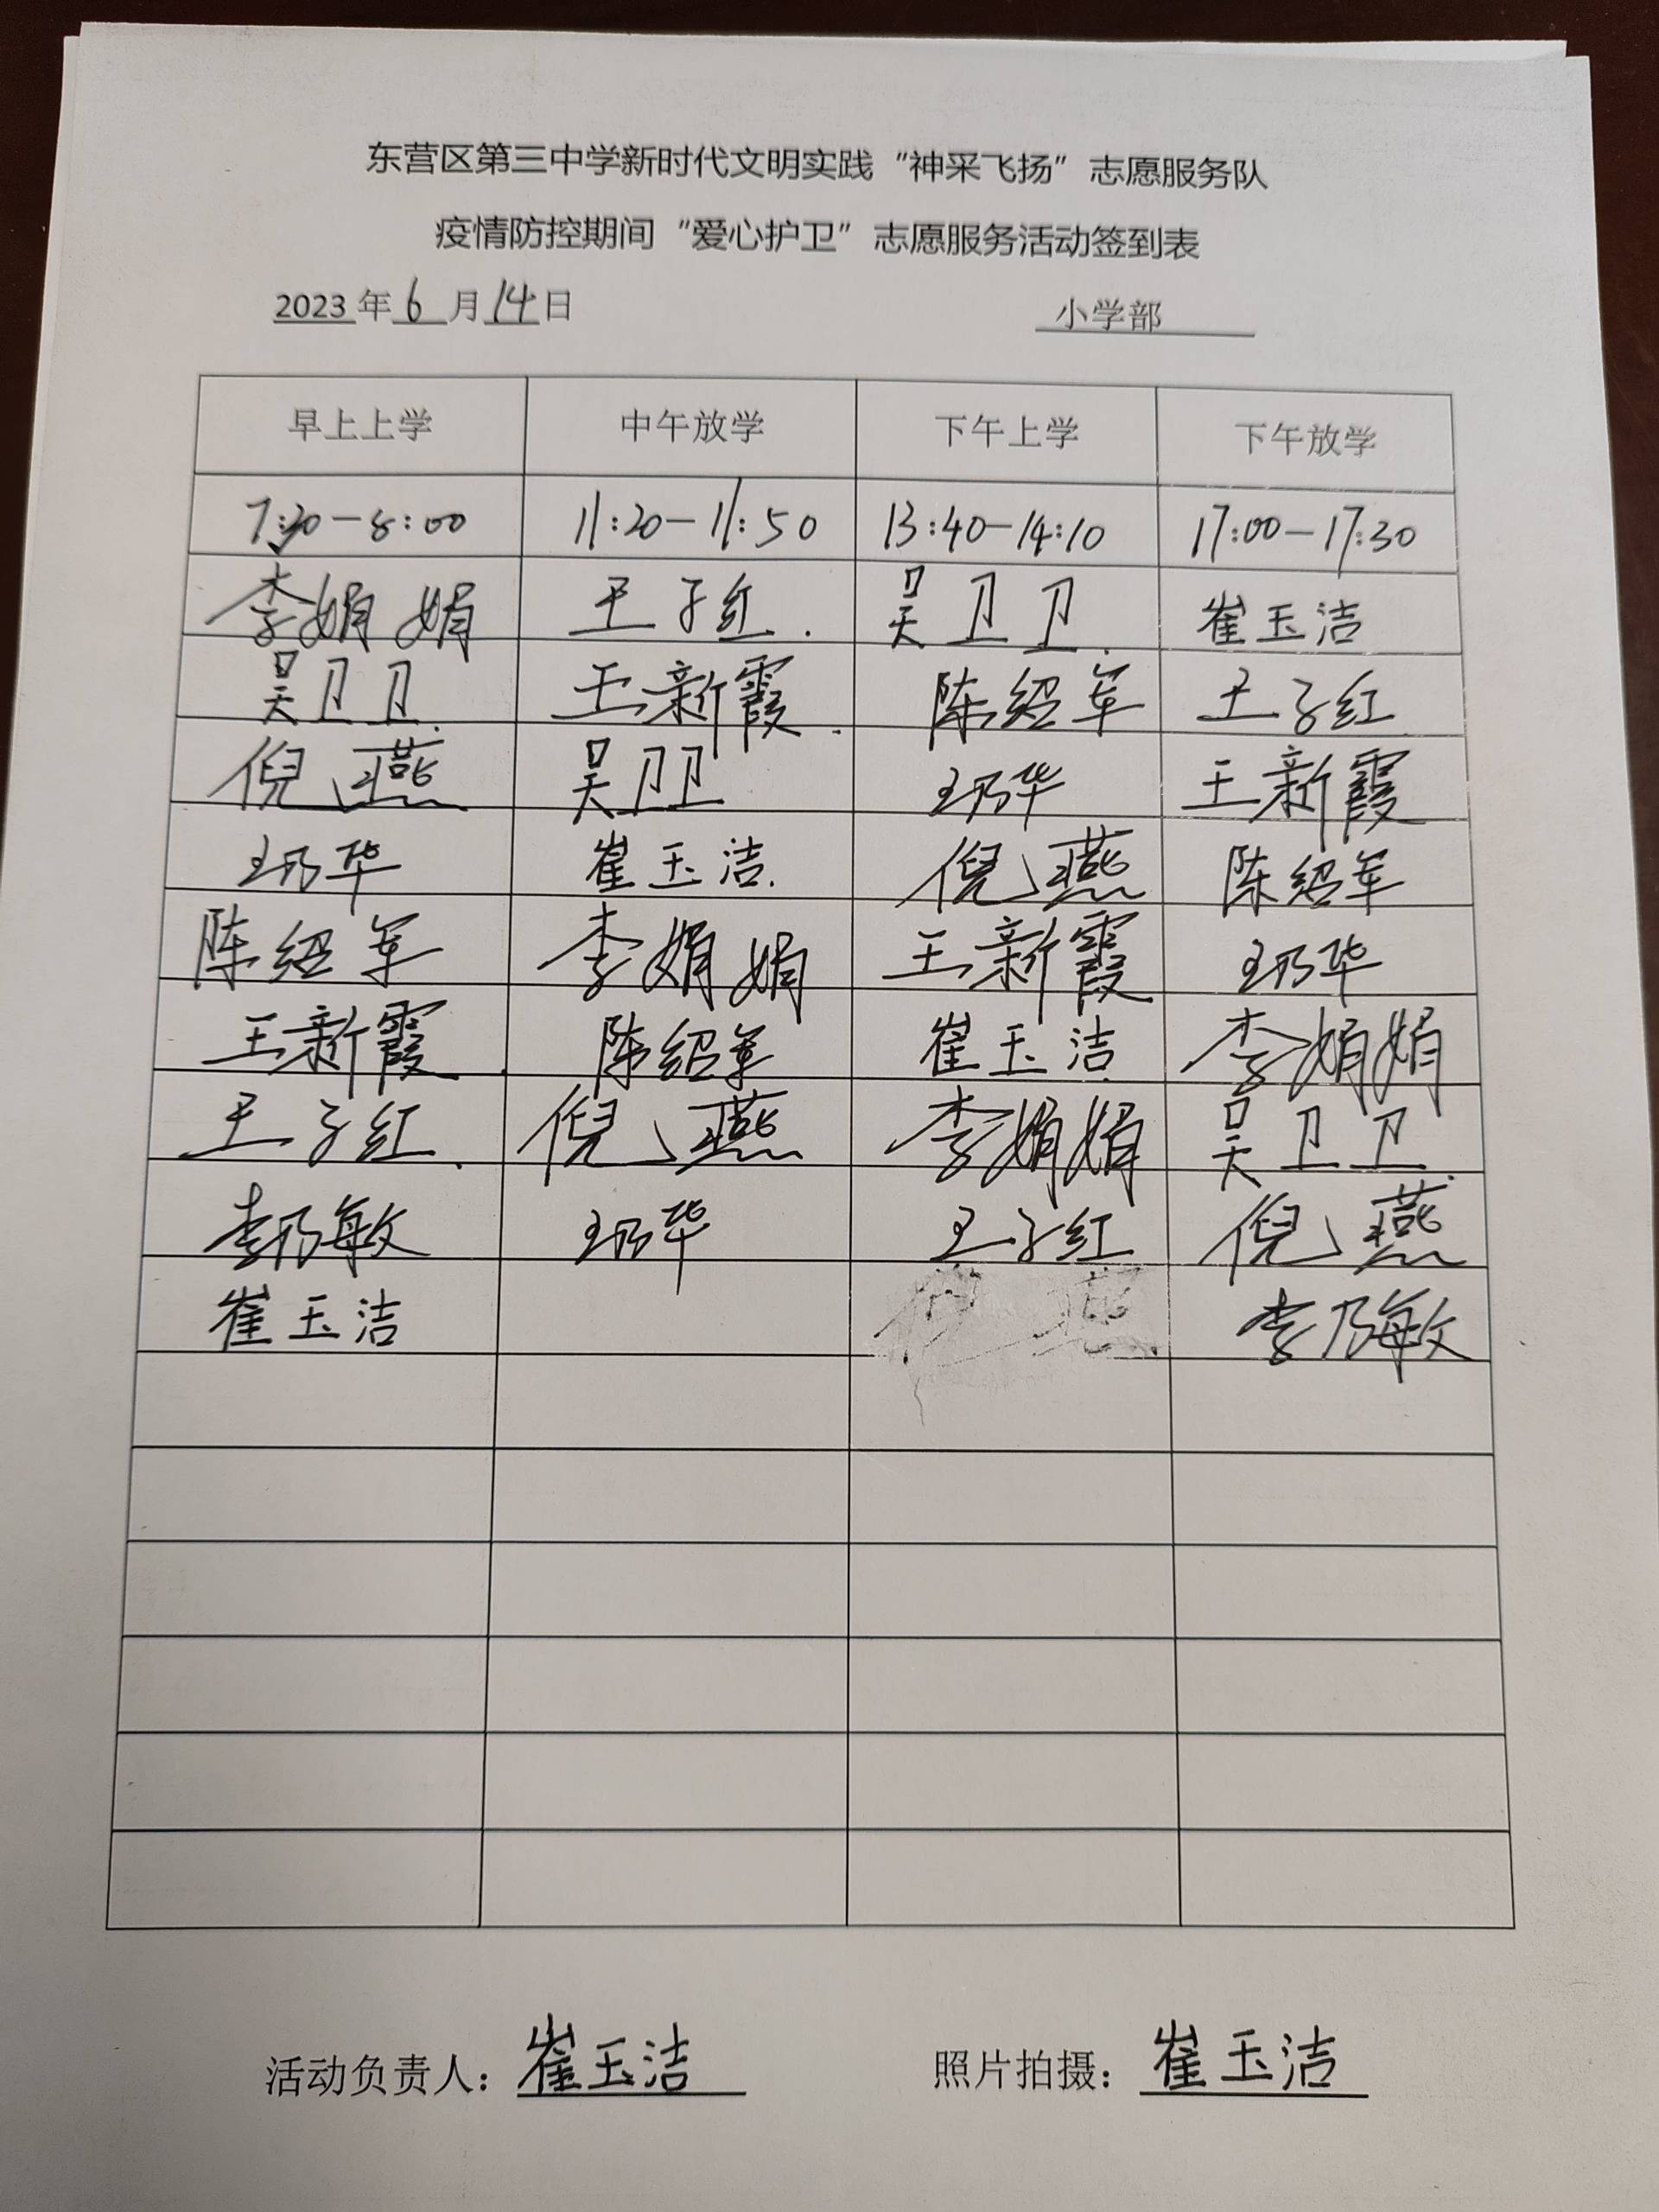 东营区第三中学新时代文明实践“神采飞扬”志愿服务队
疫情防控期间“爱心护卫”志愿服务活动签到表
2023年6月14日 小学部
早上上学 中午放学 下午上学 下午放学
7:30-8:00 11:20-11:50 13:40-14:10 17:00-17:30
李娟娟 王子红. 吴卫卫. 崔玉洁
吴卫卫. 王新霞. 陈绍军 王子红
倪燕 吴卫卫 王乃华 王新霞
王乃华 崔玉洁. 倪燕 陈绍军
陈绍军 李娟娟 王新霞 王乃华
王新霞. 陈绍军 崔玉洁. 李娟娟
王子红. 倪燕 李娟娟 吴卫卫.
李乃敏 王乃华 王子红 倪燕
崔玉洁 李乃敏
活动负责人：崔玉洁 照片拍摄：崔玉洁